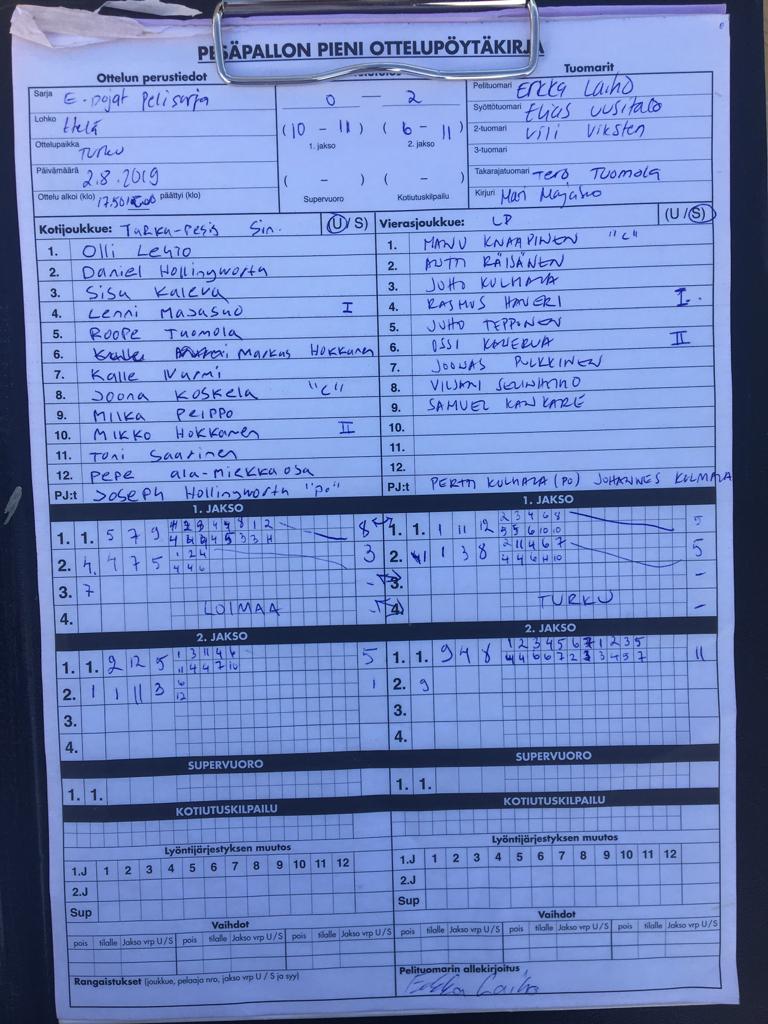 PESÄPALLON PIENI OTTELUPÖYTÄKIRJA
Ottelun perustiedot
Tuomarit
Sarja E-pojat Pelisarja
Lohko Etelä
Ottelupaikka Turku
Päivämäärä 2.8.2019
Ottelu alkoi (klo) 17.50 päättyi (klo)
0 – 2
(10 – 11) (6 – 11)
1. jakso 2. jakso
( – ) ( – )
Supervuoro Kotiutuskilpailu
Pelituomari Erkka Laiho
Syöttötuomari Elias Uusitalo
2-tuomari Vili Viksten
3-tuomari
Takarajatuomari Tero Tuomola
Kirjuri Mari
Kotijoukkue: Turku-Pesis Sin. (U/S)
1. Olli Lehto
2. Daniel Hollingworth
3. Sisu Kaleva
4. Lenni I
5. Roope Tuomola
6. Markus Hokkanen
7. Kalle Nurmi
8. Joona Koskela "C"
9. Miika Peippo
10. Mikko Hokkanen II
11. Toni Saarinen
12. Pepe ala-Miekkaoja
PJ:t Joseph Hollingworth "po"
Vierasjoukkue: LP (U/S)
1. MANU KNAAPINEN "C"
2. ANTTI RÄISÄNEN
3. JUHO KULMALA
4. RASMUS HAVERI I.
5. JUHO TEPPONEN
6. OSSI KANERVA II
7. JOONAS PULKKINEN
8. VILJAMI
9. SAMUEL KANKARE
10.
11.
12.
PJ:t PERTTI KULMALA (PO) JOHANNES KULMALA
1. JAKSO
1. 1. 5 7 9 8
2. 4. 4 7 5 1 2 4 3
4 4 6
3. 7 -
4. LOIMAA -
1. JAKSO
1. 1. 1 11 12 2 3 4 6 8 5
5 5 6 10 10
2. 1 3 8 2 11 4 6 7 5
4 4 6 10
3. -
4. TURKU -
2. JAKSO
1. 1. 2 12 5 1 3 11 4 6 5
11 4 4 7 10
2. 1 1 11 3 6 1
12
3.
4.
2. JAKSO
1. 1. 9 4 8 1 2 3 4 5 6 7 1 2 3 5 11
4 4 6 6 7 2 3 3 4 5 7
2. 9
3.
4.
SUPERVUORO
1. 1.
SUPERVUORO
1. 1.
KOTIUTUSKILPAILU
KOTIUTUSKILPAILU
Lyöntijärjestyksen muutos
1.J 1 2 3 4 5 6 7 8 9 10 11 12
2.J
Sup
Lyöntijärjestyksen muutos
1.J 1 2 3 4 5 6 7 8 9 10 11 12
2.J
Sup
Vaihdot
pois tilalle Jakso vrp U/S pois tilalle Jakso vrp U/S pois tilalle Jakso vrp U/S
Vaihdot
pois tilalle Jakso vrp U/S pois tilalle Jakso vrp U/S pois tilalle Jakso vrp U/S
Rangaistukset (joukkue, pelaaja nro, jakso vrp U / S ja syy)
Pelituomarin allekirjoitus
Erkka Laiho